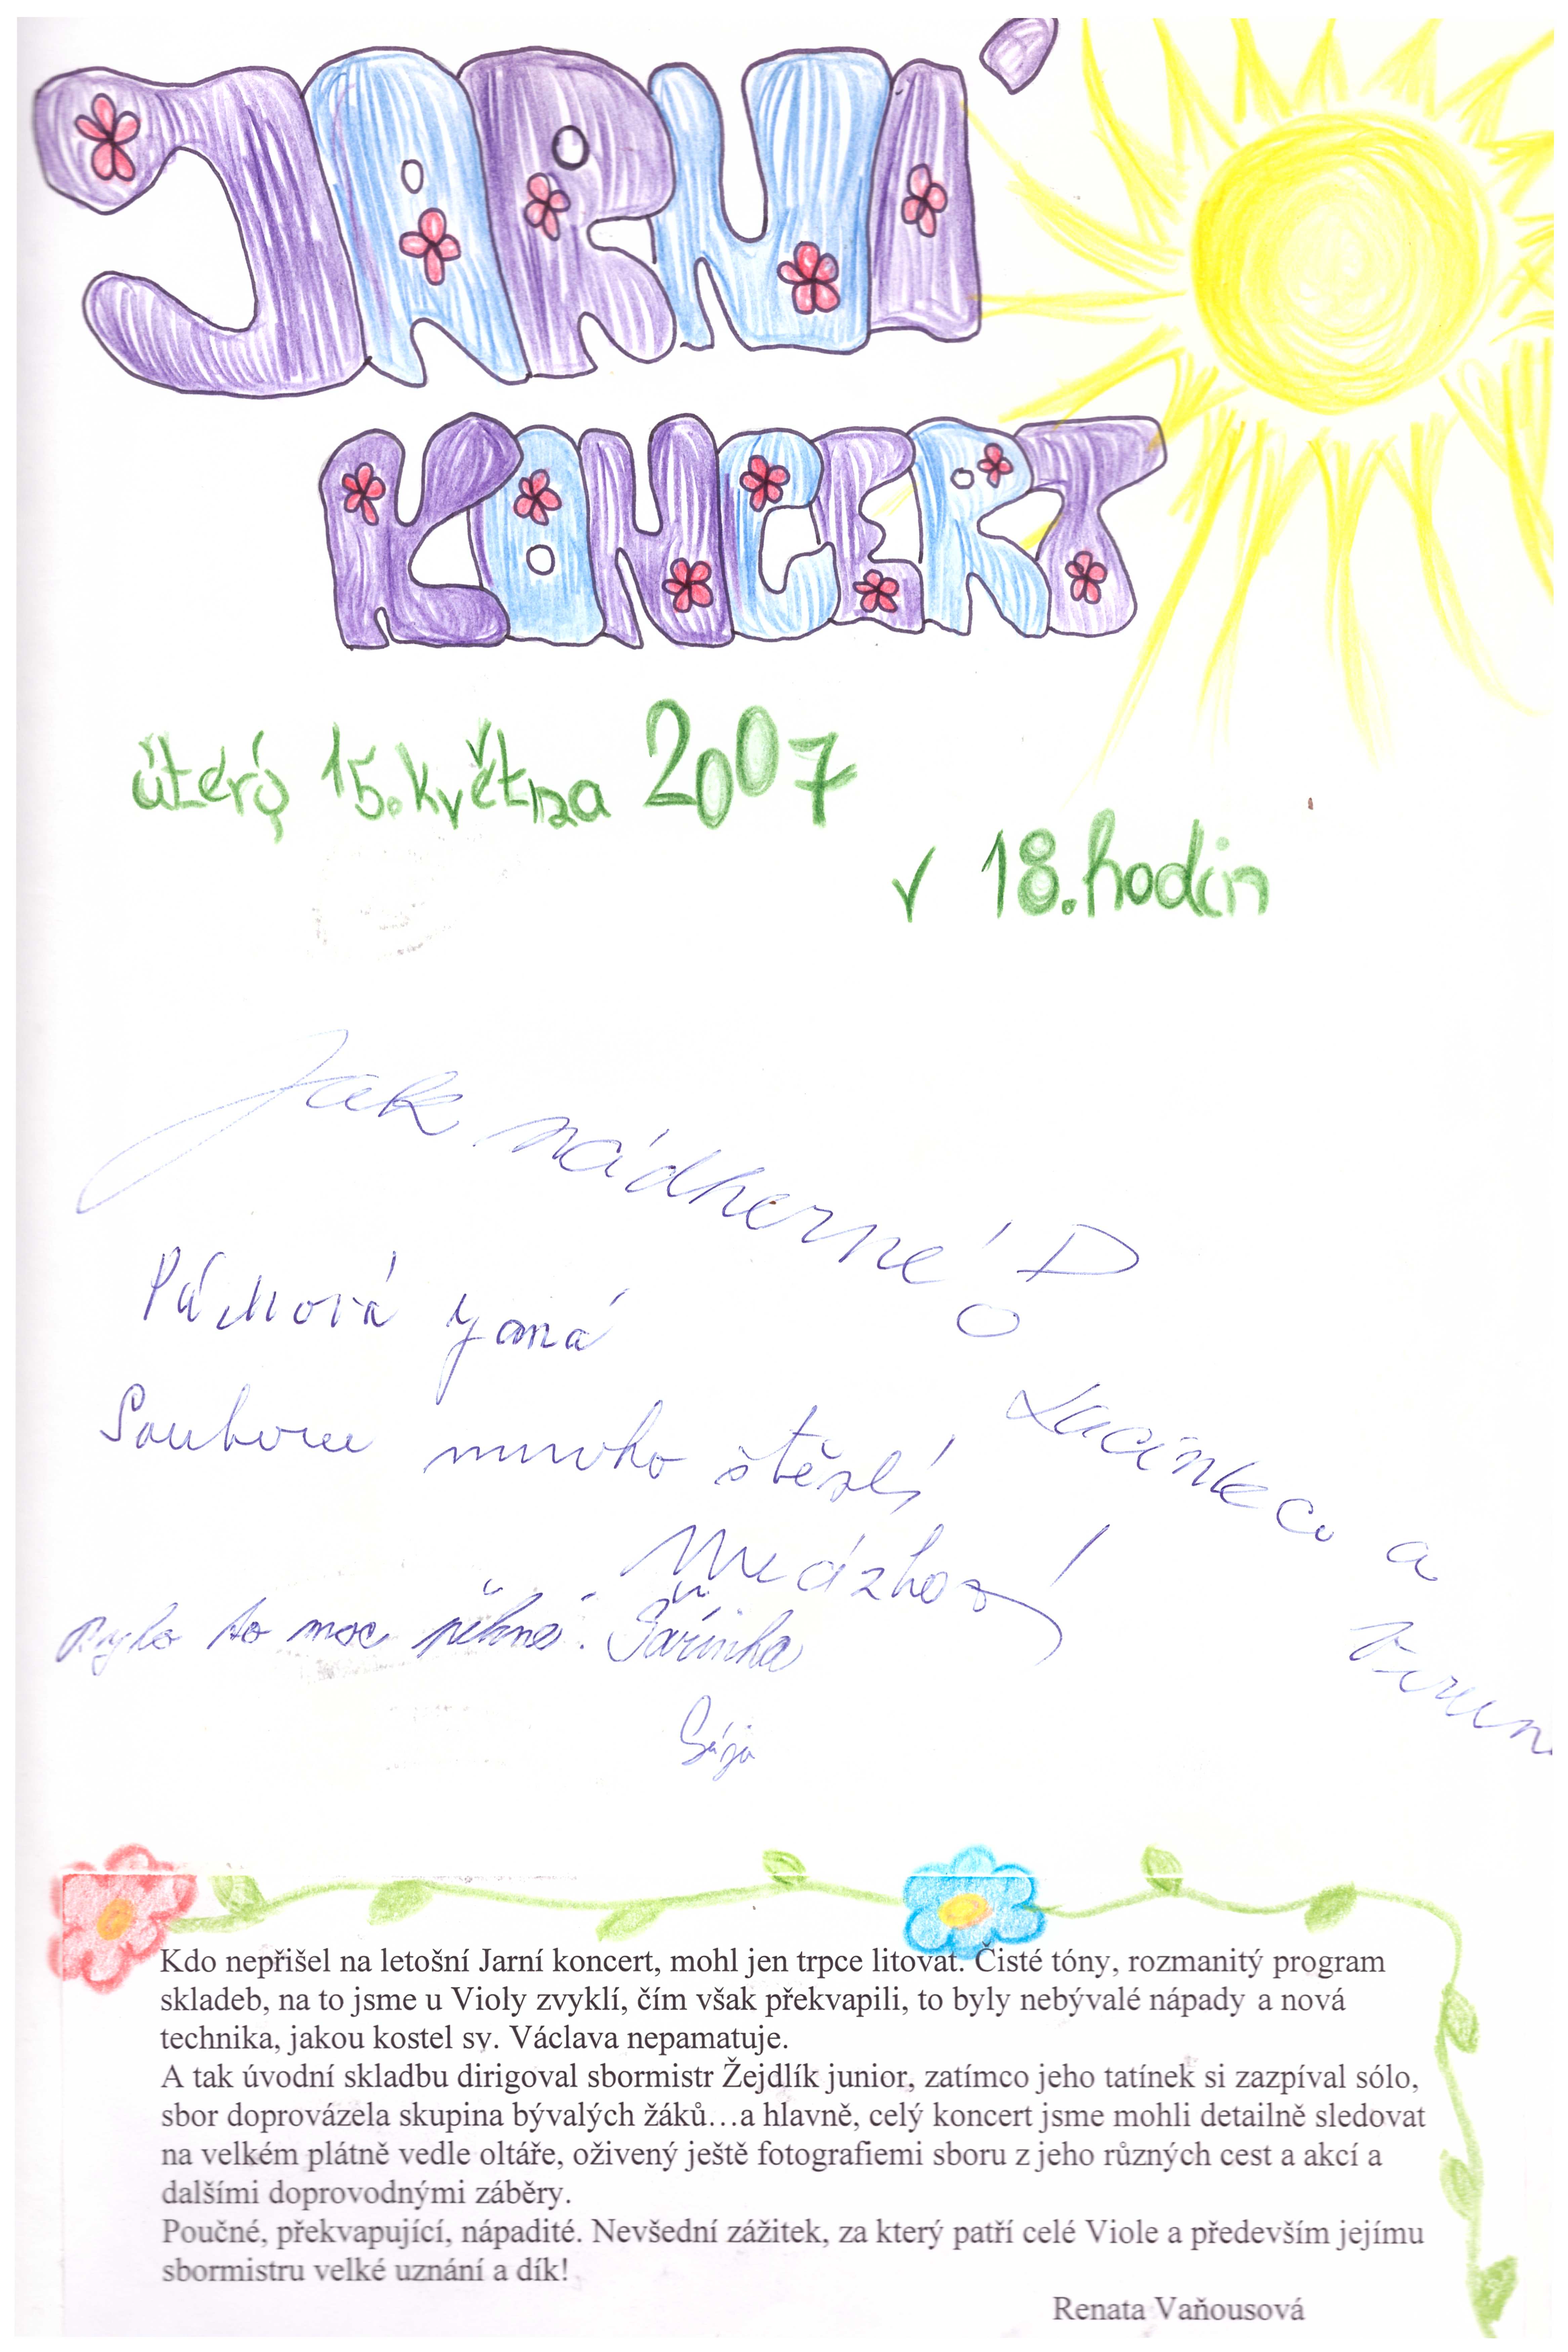 JARNÍ
KONCERT
úterý 15. května 2007
v 18. hodin
Jak nádherné
Jana
Souboru mnoho štěstí
Lucinka a
Bylo to moc pěkné. Šárinka
Kdo nepřišel na letošní Jarní koncert, mohl jen trpce litovat. Čisté tóny, rozmanitý program
skladeb, na to jsme u Violy zvyklí, čím však překvapili, to byly nebývalé nápady a nová
technika, jakou kostel sv. Václava nepamatuje.
A tak úvodní skladbu dirigoval sbormistr Žejdlík junior, zatímco jeho tatínek si zazpíval sólo,
sbor doprovázela skupina bývalých žáků…a hlavně, celý koncert jsme mohli detailně sledovat
na velkém plátně vedle oltáře, oživený ještě fotografiemi sboru z jeho různých cest a akcí a
dalšími doprovodnými záběry.
Poučné, překvapující, nápadité. Nevšední zážitek, za který patří celé Viole a především jejímu
sbormistru velké uznání a dík!
Renata Vaňousová